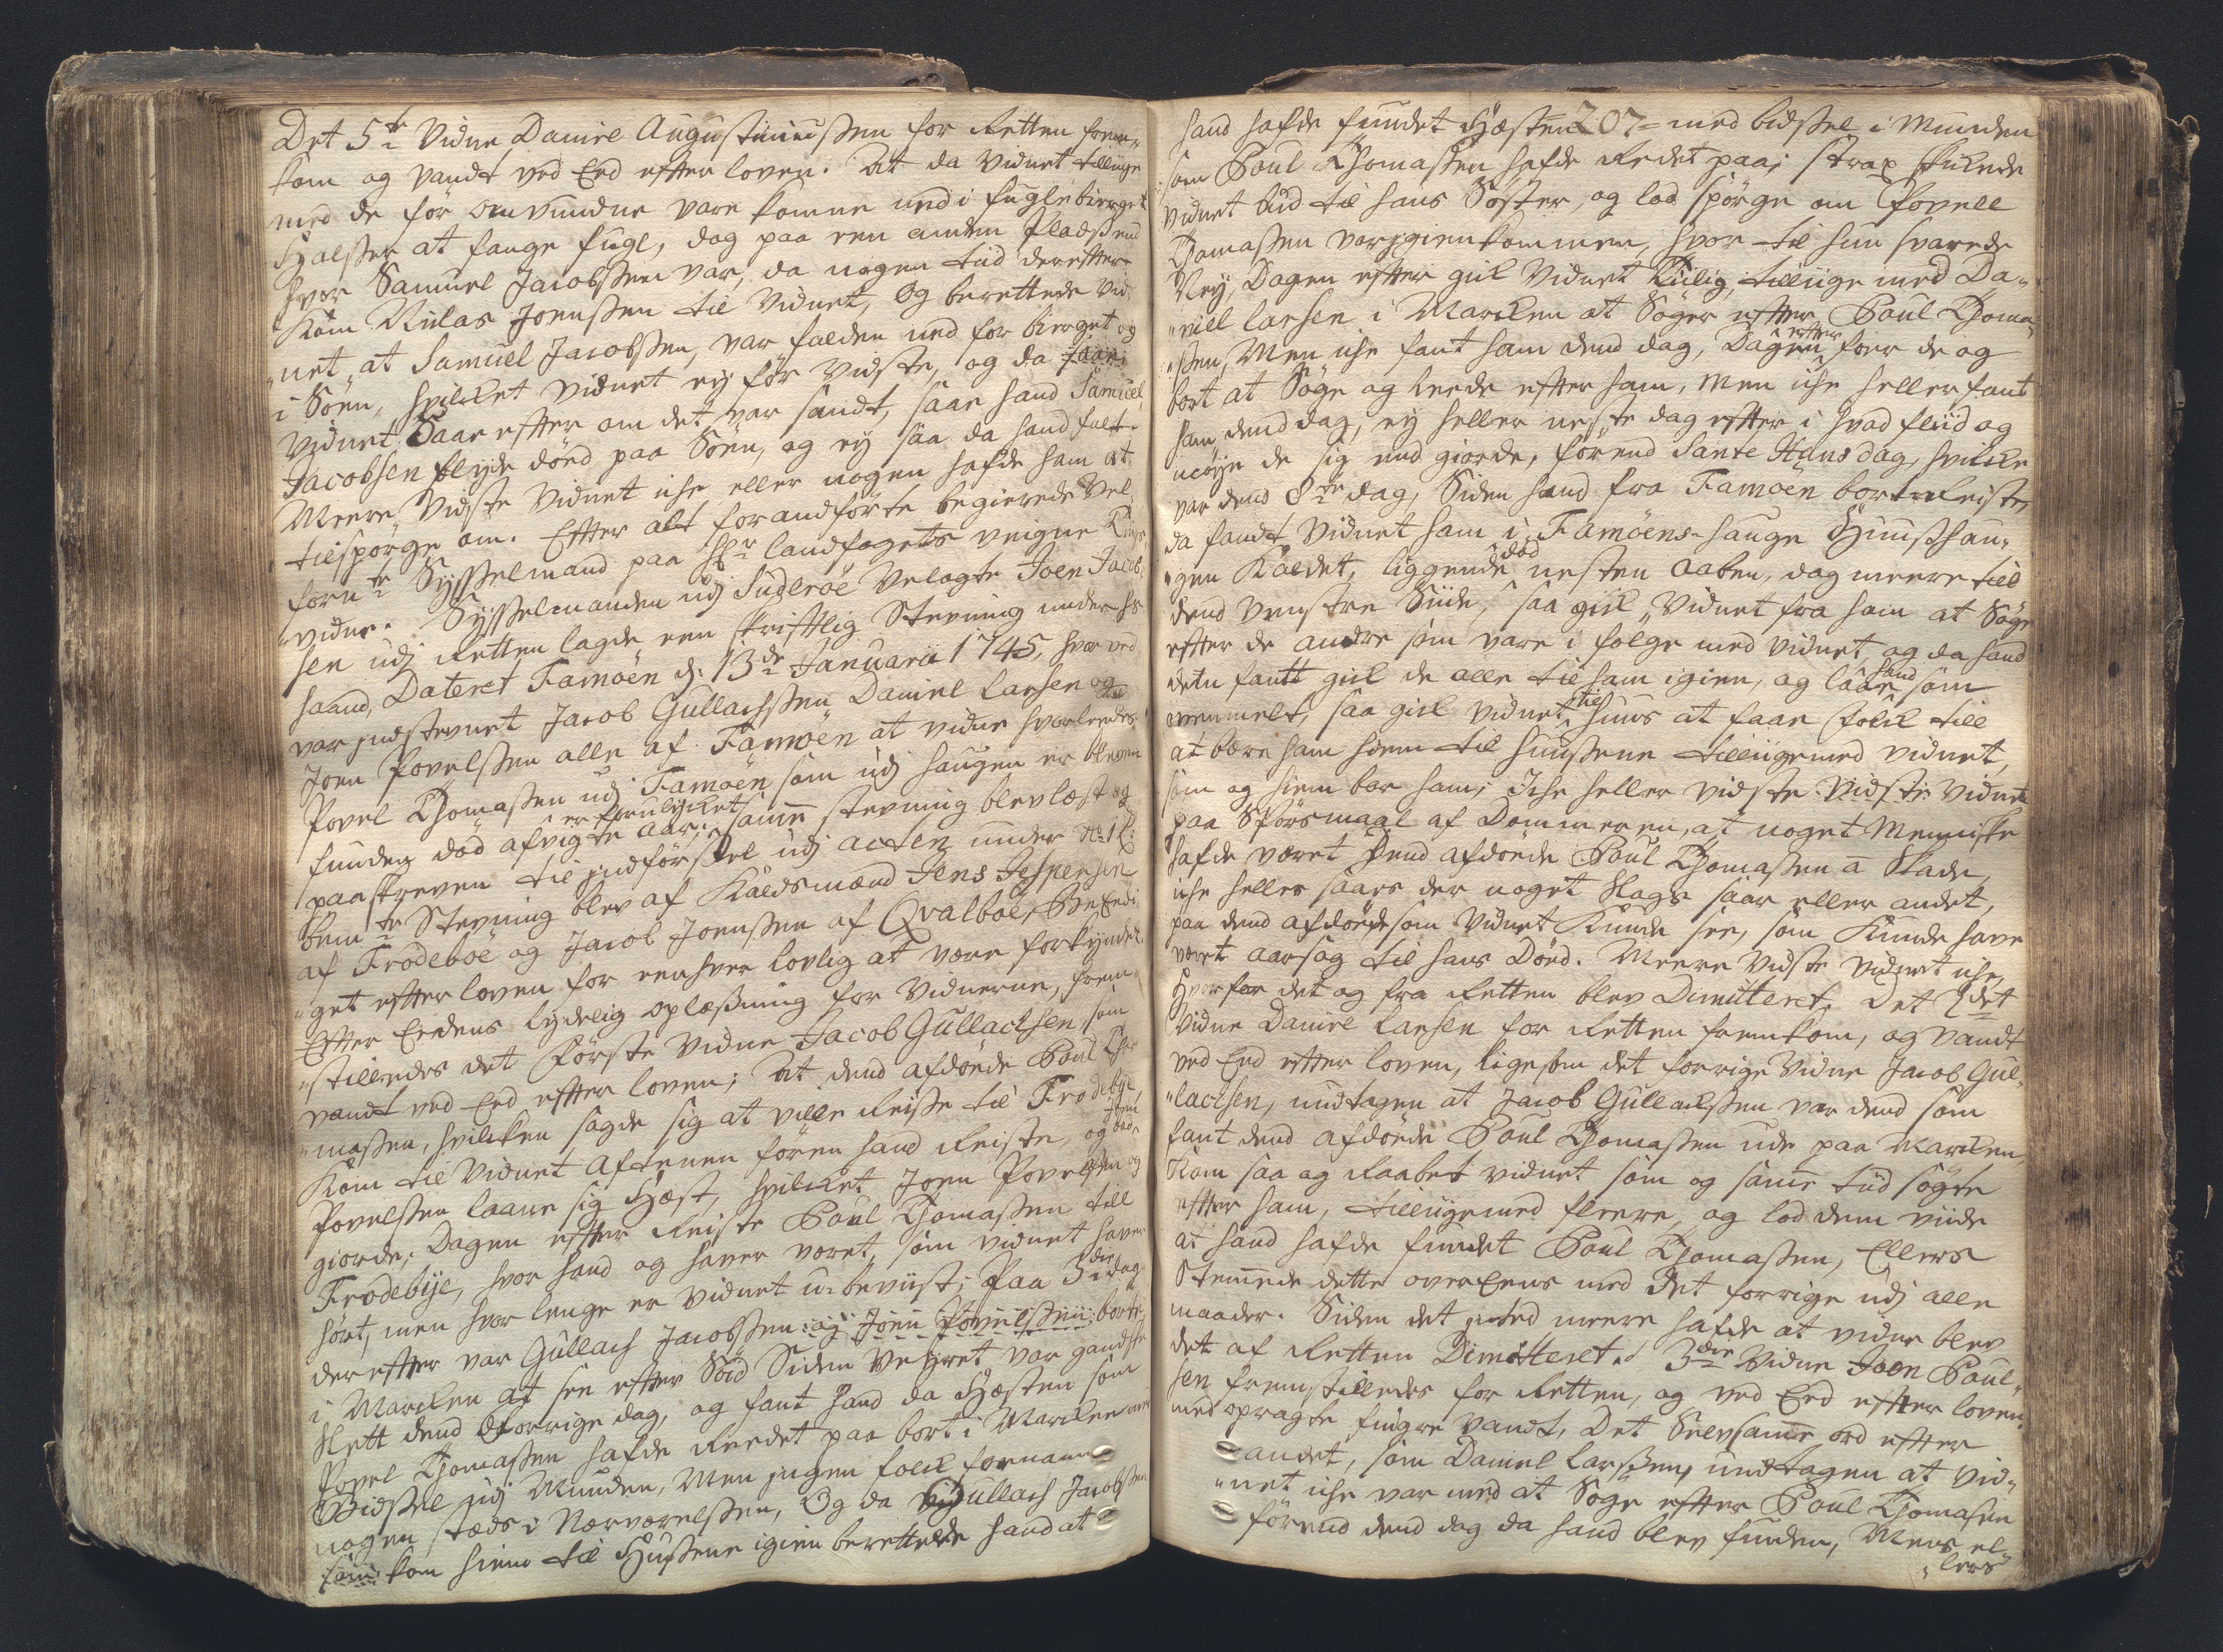 Det 5te Vidne Daniel Augustinussen for Retten frem„
kom og vandt ved Eed effter loven. At da vidnet tillige
med de før omvundne vare komne ned i fuglebierget
Halsser at fange fugl, dog paa een anden Pladss end
hvor Samuel Jacobssen var, da nogen tiid dereffter
kom Niclas Joenssen til Vidnet, Og berettede vid„
„net, at Samuel Jacobssen, var falden ned for bierget og
i Søen, hvilcket vidnet ey før vidste, og da
vidnet Saae effter om det var sandt, saae hand Samuel
Jacobsen flyde død paa Søen, og ey saa da hand falt.
Meere vidste vidnet iche eller nogen hafde ham at
tilspørge om. Effter alt forandførte begierede Vel„
fornte Sysselmand paa Hr landfogets veigne
vidne. Sysselmanden udj Suderøe Velagte Joen Jacob„
sen udj Retten lagde een skrifftlig Stevning under hs
haand, Dateret Famøen d: 13de Januarii 1745, hvor ved
var indstevnet Jacob Gullachssen, Daniel larsen og
Joen Povelssen alle af Famøen at vidne hvorleedes
Povel Thomassen udj Famøen som udj haugen er bleven
funden død afvigte aar, er forulycket samme stevning blev læst og
paaskreven til indførssel udj acten under No 1
bemte Stevning blev af Kaldsmænd Jens Jespersen
af Frodeboe og Jacob Joenssen af Qvalboe, Beeedi„
„get effter loven for eenhver lovlig at være forkyndet.
Effter Eedens lydelig oplæssning for Vidnerne, frem„
„stilledes det Første Vidne Jacob Gullachsen, som
vandt ved Eed effter loven; At dend afdøede Poul Tho„
„massen, hvilcken sagde sig at ville Reise til Frodebye
kom til vidnet Aftenen føren hand Reiste, og bad Joen
Povelssen laane sig Hæst, hvilcket Joen Povelssen og
giorde; Dagen effter Reiste Poul Thomassen till
Frodebye, hvor hand og haver været, som vidnet haver
hørt, men hvor lenge er vidnet u-beviist; Paa 3die dag
dereffter var Gullach Jacobssen og Joen Povelssen borte
i Marcken at see effter Søed Siden Veyret var gandske
slett dend forrige dag, og fant hand da Hæsten som
Povel Thomassen hafde Reedet paa bort i Marcken med
Bidssel udj Munden, Men ingen folck fornam
nogen stæds i Nærværelssen, Og da Gullach Jacobssen
som kom hiem til Hussene igien berettede hand at
hand hafde fundet Hæsten 207 med bidssel i Munden
som Poul Thomassen hafde Redet paa; strax skickede
vidnet bud til hans Søster, og lod spørge om Povell
Thomassen var igienkommen, hvor til hun svarede
Ney, Dagen effter gick Vidnet tiilig, tilliige med Da„
„niell larsen i Marcken at Søge effter Poul Thoma„
„ssen, Men iche fant ham dend dag, Dagen effter foer de og
bort at Søge og leede effter ham, men iche heller fant
ham dend dag, ey heller neste dag effter i hvad fliid og
umøye de sig end giorde, førend Sancte Hans dag, hvilcke
var dend 8de dag, Siden hand fra Famøen bort Reiste,
da fandt Vidnet ham i Famøens-hauge Huusshau„
„gen Kaldet, liggende død nesten aaben, dog meere till
dend venstre Siide, saa gick Vidnet fra ham at Søge
effter de andre som vare i følge med vidnet, og da hand
dem fantt gick de alle til ham igien, og laae hand som
ommelt, saa gick vidnet til huus at faae folck till
at bære ham hiem til huussene tilliigemed vidnet,
som og hiem bar ham; Iche heller vidste vidste vidnet
paa Spørsmaal af Dommeren, at noget Menniske
hafde været Dend afdøede Poul Thomassen a Skade,
iche heller saaes der noget Slags saar eller andet,
paa dend afdøede som vidnet Kunde see, som Kunde have
været aarsag til hans Død. Meere vidste vidnet iche,
Hvorfor det og fra Retten blev Dimitteret. Det 2det
Vidne Daniel larsen for Retten fremkom, og vandt
ved Eed effter loven, ligesom det forrige Vidne Jacob Gul„
„lachsen, undtagen at Jacob Gullachssen var dend som
fant dend afdøede Poul Thomassen ude paa Marcken,
kom saa og Raabet vidnet som og samme tiid søgte
effter ham, tilliigemed fleere, og lod dem viide
at hand hafde fundet Poul Thomassen, Ellers
Stemmede dette overeens med Det forrige udj alle
maader. Siden det inted meere hafde at vidne blev
det af Retten Dimitteret. 3die Vidne Joen Poul„
sen fremstilledes for Retten, og ved Eed effter loven
med opragte fingre vandt, Det Selvsamme ord effter
andet, som Daniel Larssen, undtagen at vid„
„net iche var med at Søge effter Poul Thomassen
førend dend dag da hand blev funden, Mens el„
„lers